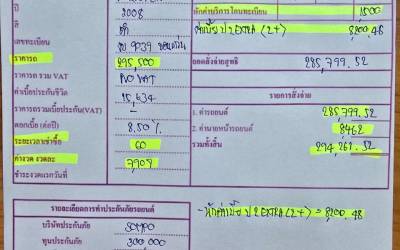 ปี 2008
หักค่าบริการโอนทะเบียน 1500
สี ดำ
ค่าเบี้ย ป2 EXTRA (2+) 8200.48
เลขทะเบียน 9039 ขอนแก่น
ราคารถ 295,500
ยอดคงจ่ายสุทธิ 285,799.52
ราคารถ รวม VAT NO VAT
ค่าเบี้ยประกันชีวิต 15,634
รายการสั่งจ่าย
ราคารถรวมเบี้ยประกัน(VAT)
1. ค่ารถยนต์ 285,799.52
ดอกเบี้ย (ต่อปี) 8.50%
2. ค่านายหน้ารถยนต์ 8462
ระยะเวลาเช่าซื้อ 60
รวมทั้งสิ้น 294,261.52
ค่างวด งวดละ 7,909
ชำระงวดแรกวันที่
รายละเอียดการทำประกันภัยรถยนต์
- หักค่าเบี้ย ป2 EXTRA (2+) = 8200.48
บริษัทประกันภัย SOMPO
ทุนประกันภัย 300,000